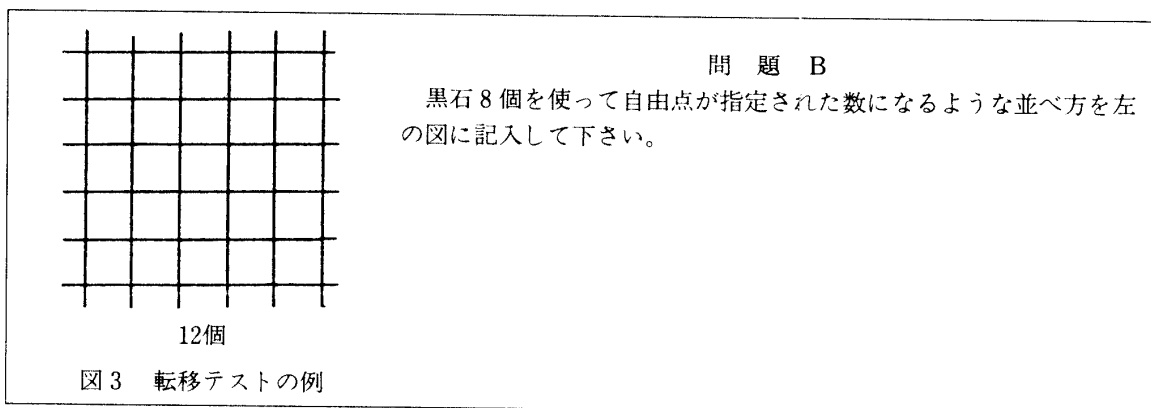 問 題 B
黒石8個を使って自由点が指定された数になるような並べ方を左
の図に記入して下さい。
12個
図3 転移テストの例